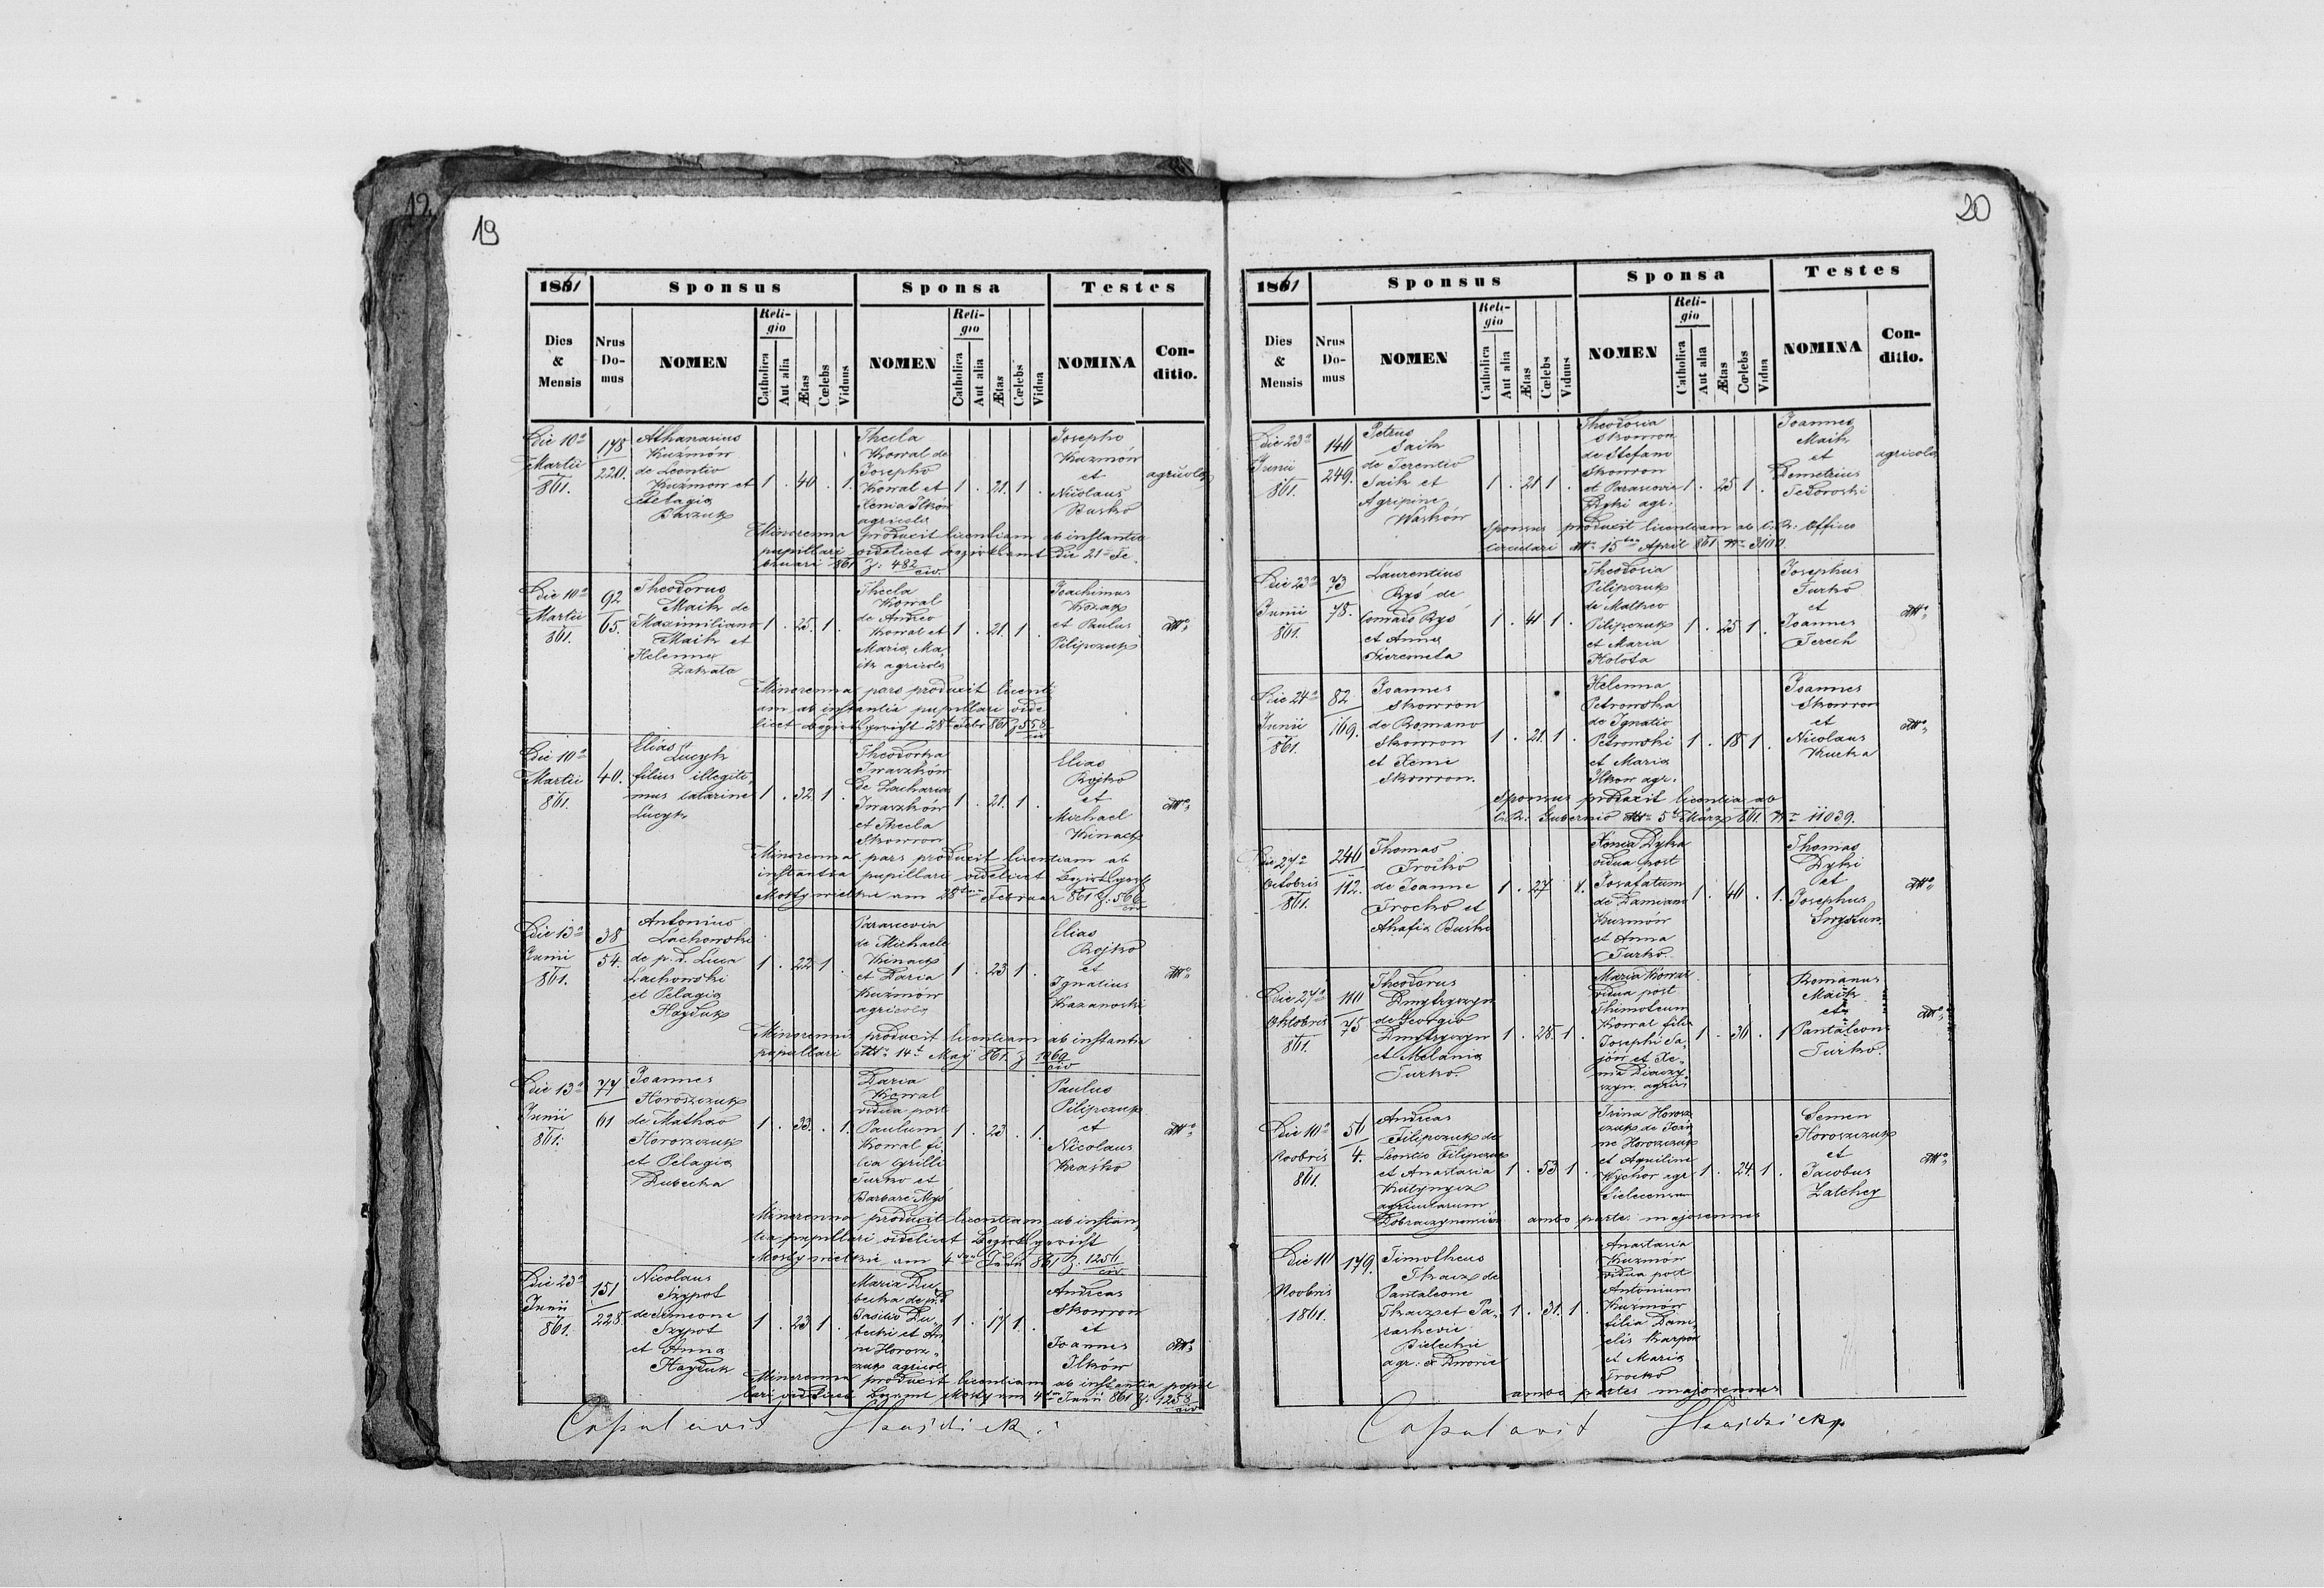 12
19
1861
Sponsus
Sponsa
Testes
Dies & Mensis
Nrus Domus
NOMEN
Religio
Catholica
Aut alia
Ætas
Cœlebs
Viduus
NOMEN
Religio
Catholica
Aut alia
Ætas
Cœlebs
Vidua
NOMINA
Conditio.
Die 10a
Martii
861.
178
220.
Athanasius
Kuzmów
de Leontio
Kuźmow et
Pelagia
1 . 40 . 1.
Thecla
Kowal de
Josepho
Kowal et
Xenia Ilków
agricola
1 . 21 1 .
Josepho
Kuzmów
et
Nicolaus
Busko
agricola
Minorenna produxit licentiam ab instantia
pupillari videlicet Bezirksamt Die 21a Fe
bruari 861 Z: 482
civ.
Die 10a
Martii
861.
92
65.
Theodorus
Maik de
Maximiliano
Maik et
Helenna
Zakala
1 . 25. 1 .
Thecla
Kowal
de Andreo
Kowal et
Maria Ma-
ik agricola
1 . 21. 1 .
Joachimus
Kozak
et Paulus
Pilipczuk
dtto
Minorenna pars produxit licenti
am ab instantia pupillari vide
licet Bezirksgericht 28t Febr 861 Z 558
civ
Die 10a
Martii
861.
40.
Elias
Lucyk
filius illegiti-
mus Catarine
Lucyk
1 . 32. 1 .
Theodorka
Iwaszków
de Zacharia
Iwaszków
et Thecla
Skowron
1 . 21. 1 .
Elias
Rojko
et
Michael
Kinach
dtto
Minorenna pars produxit licentiam ab
instantia pupillari videlicet Bezirksger
Mosty wielkie am 28ten Februar 861 Z: 566
civ
Die 13a
Junii
861.
38
54.
Antonius
Lachowski
de p. d. Luca
Lachowski
et Pelagia
Hayduk
1 . 22 1 .
Parascevia
de Michaele
Kinach
et Daria
Kuźmów
agricola
1 . 23 1 .
Elias
Rojko
et
Ignatius
Kazanowski
dtto
Minorennis produxit licentiam ab instantia
pupillari dtto 14t May 861. Z 1069
civ
Die 13a
Junii
861.
77
61
Joannes
Horoszczuk
de Matheo
Horoszczuk
et Pelagia
Dubecka
1 . 33. . 1.
Daria
Kowal
vidua post
Paulum
Kowal fi-
lia Grilli
Turko et
Barbare Mys
1 . 23 . 1.
Paulus
Pilipczuk
et
Nicolaus
Kraśko
dtto
Minorenna produxit licentiam ab instan
tia pupillari videlicet Bezirksgericht
Mosty wielkie am 4ten Junii 861 Z. 1256
civ
Die 23a
Junii
861.
151
228.
Nicolaus
Szypot
de Simeone
Szypot
et Anna
Hayduk
1 . 23 1 .
Maria Du-
becka de p.d
Basilio Du-
becki et An
ne Horosz-
czuk agricol.
1 . 17 1 .
Andreas
Skowron
et
Joannes
Ilków
dtto
Minorenna produxit licentiam ab instantia pupil
lari videlicet Bezamt Mosty am 4ten Junii 861 Z. 1258
civ
20
1861
Sponsus
Sponsa
Testes
Dies & Mensis
Nrus Domus
NOMEN
Religio
Catholica
Aut alia
Ætas
Cœlebs
Viduus
NOMEN
Religio
Catholica
Aut alia
Ætas
Cœlebs
Vidua
NOMINA
Conditio.
Die 23a
Junii
861.
146
249.
Petrus
Saik
de Terentio
Saik et
Agripine
Waskow
1 . 21 1 .
Theodosia
Skowron
de Stefano
Skowron
et Parascevia
Dyki agr.
1 . 25 1 .
Joannes
Maik
et
Demetrius
Fedorowski
agricola
Sponsus produxit licentiam ab C.R. Officio
Circulari dtto 15ten April 861 Nro 3100.
Die 23a
Junii
861.
73
78.
Laurentius
Ryś de
Conrado Ryś
et Anna
Szeremeta
1 . 41 1 .
Theodosia
Pilipczuk
de Matheo
Pilipczuk
et Maria
Kolota
1 . 25 1 .
Josephus
Turko
et
Joannes
Terech
dtto
Die 24a
Junii
861.
82
169.
Joannes
Skowron
de Romano
Skowron
et Xeni
Skowron.
1 . 21. 1 .
Helenna
Petrowska
de Ignatio
Petrowski
et Maria
Ilkow agr.
1 . 18 1 .
Joannes
Skowron
et
Nicolaus
Kurka
dtto
Sponsus produxit licentia ab
C.R. Gubernio dtto 5t März 861 Nro 11039.
Die 27a
Octobris
861.
246
112.
Thomas
Trocko
de Joanne
Trocko et
Ahafia Busko
1 . 27 1.
Xenia Dyka
vidua post
Josafatum
de Damiano
Kuzmów
et Anna
Turko.
1 . 40 . 1.
Thomas
Dyki
et
Josephus
dtto
Die 27a
Oktobris
861.
75
Theodorus
Dmytryszyn
de Georgio
Dmytryszyn
et Melania
Turko.
1 . 28. 1 .
Maria Kowal
vidua post
Thimoteum
Kowal filia
Josephi Sa-
jów et Xe-
nia Diaczy-
szyn. agric.
1 . 36 . 1
Romanus
Maik
et
Pantaleon
Turko.
dtto
Die 10a
Novbris
861.
56
4.
Andreas
Filipczuk de
Leontio Filipczuk
et Anastasia
agricolarum
1 . 53 1 .
Irina Horosz
czuk de Joan
ne Horoszczuk
et Aquiline
Wychor agr
1 . 24. 1 .
Semen
Horoszczuk
et
Jacobus
Zalchey
dtto
ambo partes majorennes
Die 10
Novbris
1861.
179.
Timotheus
Tkacz de
Pantaleone
Tkacz et Pa-
raskevie
Bielecki
agr: ex Dworie
1 . 31. 1 .
Anastasia
Kuzmów
vidua post
Antonium
Kuzmów
filia Dani-
elis Karpow
et Maria
Trocko
ambo partes majorennes